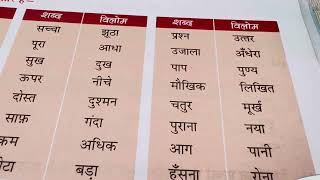 शब्द विलोम
सच्चा झूठा
पूरा आधा
सुख दुख
ऊपर नीचे
दोस्त दुश्मन
साफ़ गंदा
कम अधिक
बड़ा
शब्द विलोम
प्रश्न उत्तर
उजाला अँधेरा
पाप पुण्य
मौखिक लिखित
चतुर मूर्ख
पुराना नया
आग पानी
हँसना रोना